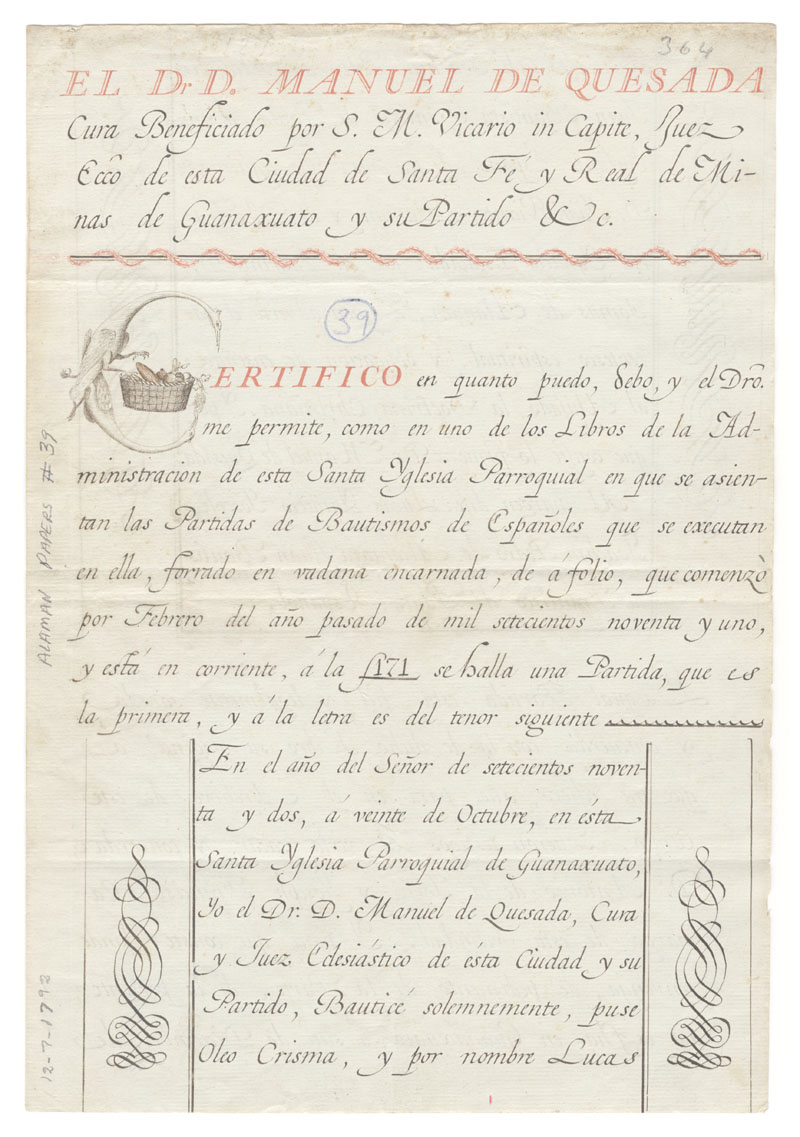 364
EL Dr. D. MANUEL DE QUESADA
Cura Beneficiado por S. M. Vicario in Capite, Juez
Eccô de esta Ciudad de Santa Fé y Real de Mi-
nas de Guanaxuato y su Partido &c.
39
CERTIFICO en quanto puedo, debo, y el Drô.
me permite, como en uno de los Libros de la Ad-
ministracion de esta Santa Yglesia Parroquial en que se asien-
tan las Partidas de Bautismos de Españoles que se executan
en ella, forrado en vadana encarnada, de á folio, que comenzò
por Febrero del año pasado de mil setecientos noventa y uno,
y está en corriente, á la f171 se halla una Partida, que es
la primera, y á la letra es del tenor siguiente
En el año del Señor de setecientos noven-
ta y dos, á veinte de Octubre, en ésta
Santa Yglesia Parroquial de Guanaxuato,
Yo el Dr. D. Manuel de Quesada, Cura
y Juez Eclesiástico de ésta Ciudad y su
Partido, Bauticé solemnemente, puse
Oleo Crisma, y por nombre Lucas
ALAMAN PAPERS #39
12-7-1792